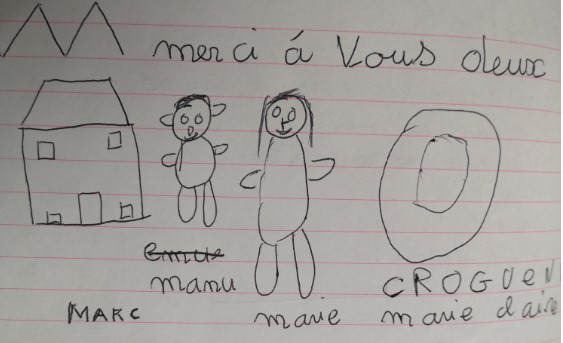 merci á Vous deux
manu
MARC
marie
CROGUEN
marie claire